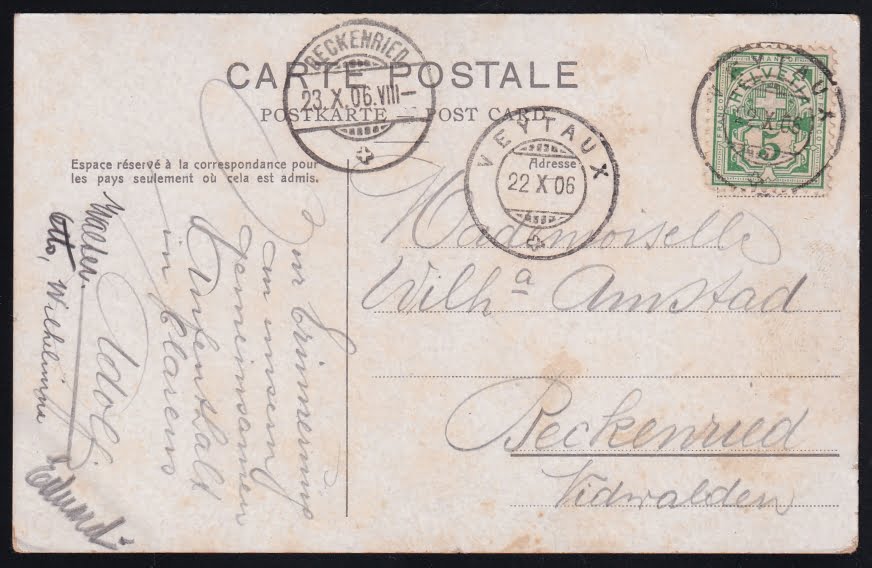 CARTE POSTALE
POSTKARTE — POST CARD
BECKENRIED
23.X.06.VIII—
VEYTAUX
22 X 06
Adresse
VEYTAUX
HELVETIA
5
Espace réservé à la correspondance pour
les pays seulement où cela est admis.
Mademoiselle
Wilhª Amstad
Beckenried
Nidwalden
Zur Erinnerung
an unsern
gemeinsamen
Aufenthalt
in Clarens
Adolf
Walter
Otto, Wilhelmine
Eduard